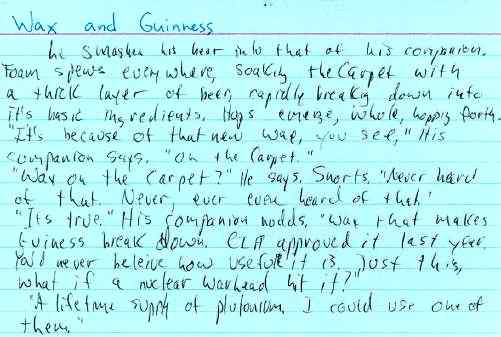 Wax and Guinness
he smashes his beer into that of his companion.
Foam spews everywhere, soaking the carpet with
a thick layer of beer, rapidly breaking down into
it's basic ingredients. Hops emerge, whole, hopping forth.
"It's because of that new wax, you see," His
companion says. "On the Carpet."
"Wax on the Carpet?" He says. Snorts. "Never heard
of that. Never, ever even heard of that."
"Its true." His companion nodds. "Wax that makes
Guiness break down. CIA approved it last year.
You'd never beleive how usefull it is. Just this,
what if a nuclear warhead hit it?"
"A lifetime supply of plutonium. I could use one of
them."